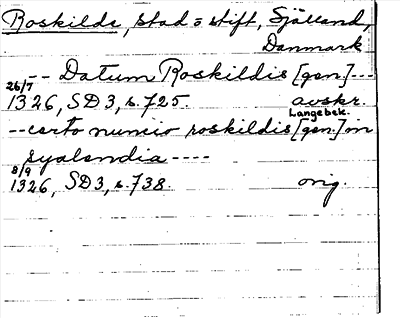 Roskilde, stad o stift, Själland,
Danmark
-- Datum Roskildis [gen.] ---
26/7
1326, SD3, s. 725. avskr.
Langebek.
-- certo nuncio roskildis [gen.] in
syalendia ----
8/9
1326, SD3, s. 738. orig.